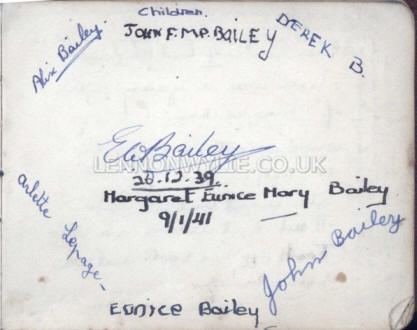 Children.
JOHN F.M.P. BAILEY
DEREK B.
Alix Bailey.
E W Bailey
LENNONWYLIE.CO.UK
28.12.39.
Margaret Eunice Mary Bailey
9/1/41
Arlette Lepage
John Bailey
EUNICE Bailey